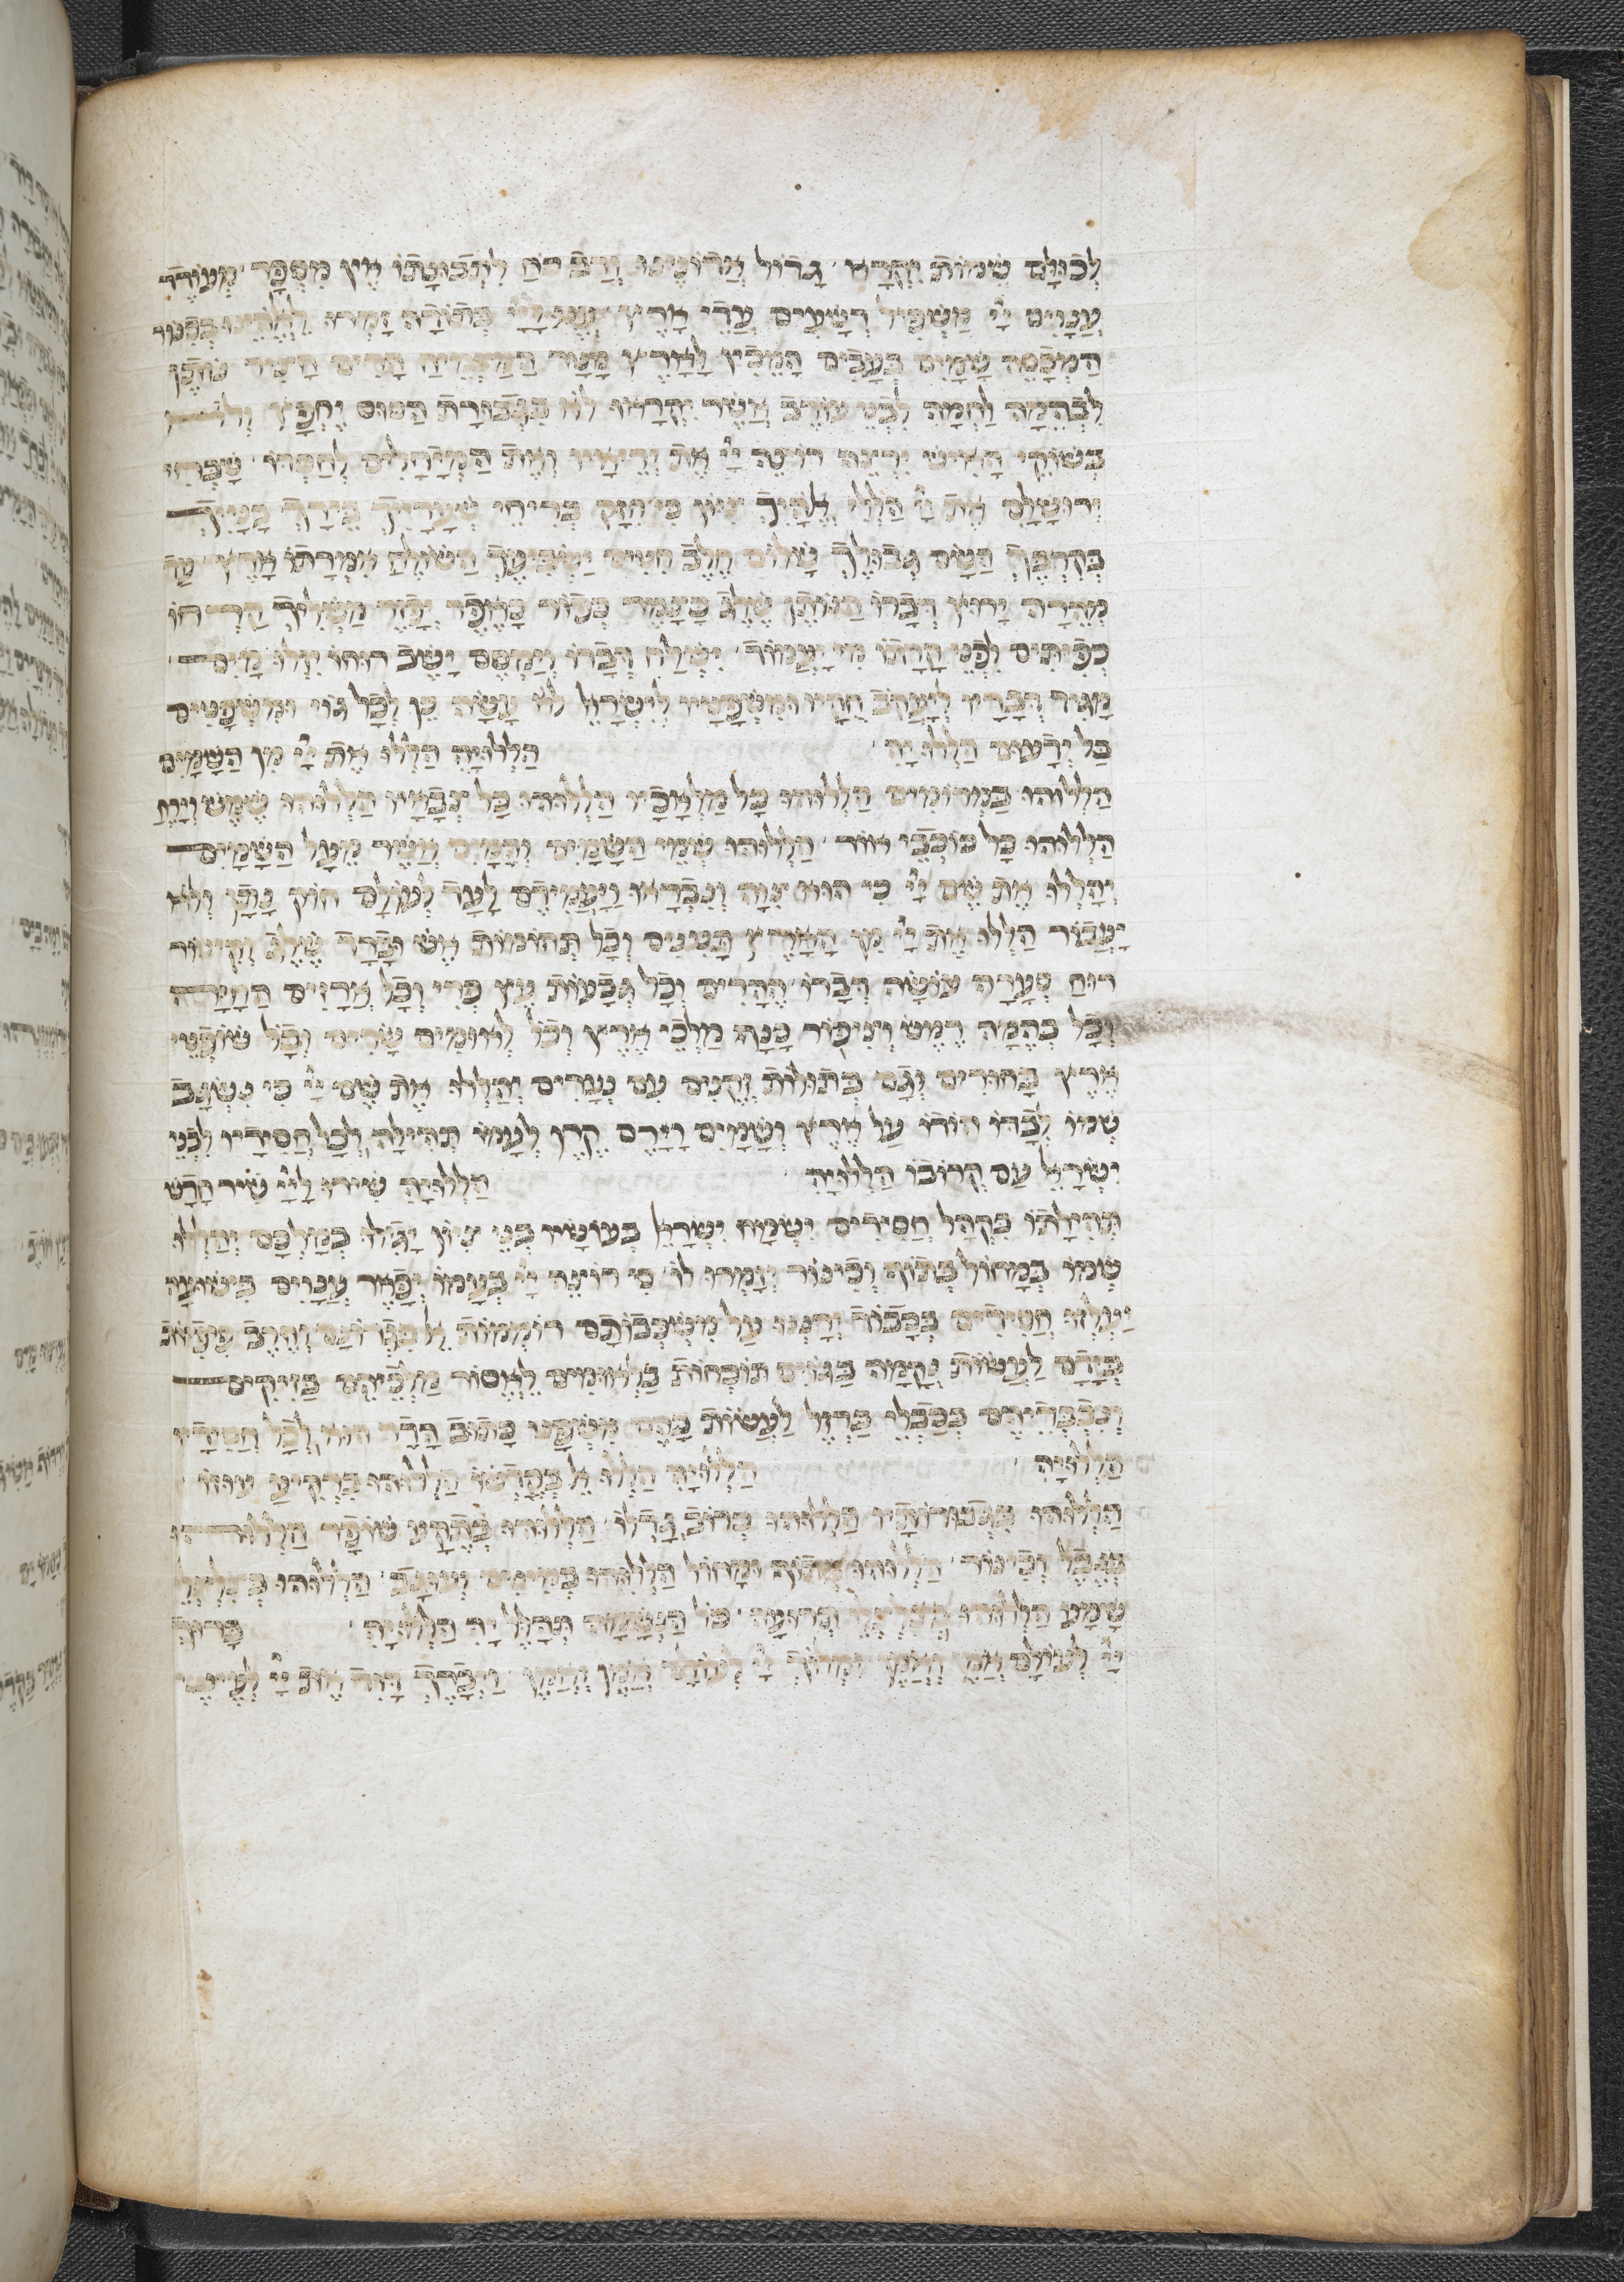 לְכוּלָם שֵׁמוֹת יִקְרָא׳ גָדוֹל אֲדוֹנֵינוּ וְרַב כֹחַ לִתְבוּנָתוֹ אֵין מִסְפָּר׳ מְעוֹדֵד
עֲנָוִים יְיָ מַשְׁפִּיל רְשָׁעִים עֲדֵי אָרֶץ עֱנוּ לַיְיָ בְּתוֹדָה זַמְּרוּ לֵאלֹהֵינוּ בְכִנּוֹר
הַמְכַסֶה שָׁמַיִם בְּעָבִים הַמֵכִין לָאָרֶץ מָטָר הַמַצְמִיחַ הָרִים חָצִיר נוֹתֵן
לִבְהֵמָה לַחְמָהּ לִבְנֵי עוֹרֵב אֲשֶׁר יִקְרָאוּ לֹא בִגְבוּרַת הַסוּס יֶחְפָּץ וְלֹא
בְשׁוֹקֵי הָאִישׁ יִרְצֶה רוֹצֶה יְיָ אֶת יְרֵיאָיו וְאֶת הַמְיַחֲלִים לְחַסְדּוֹ׳ שַׁבְּחִי
יְרוּשָׁלַם אֶת יְיָ הַלְלִי אֱלֹהַיִךְ צִיוֹן כִּי חִזַק בְּרִיחֵי שְׁעָרָיִךְ בֵּירַךְ בָּנַיִךְ
בְּקִרְבֵּךְ הַשָׂם גְבוּלֵךְ שָׁלוֹם חֵלֶב חִטִים יַשְׂבִּיעֵךְ הַשׁוֹלֵחַ אִמְרָתוֹ אָרֶץ עַד
מְהֵרָה יָרוּץ דְבָרוֹ הַנוֹתֵן שֶׁלֶג כַּצָמֶר כְּפוֹר כָּאֵפֶר יְפַזֵר מַשְׁלִיךְ קַרְחוֹ
כְפִיתִים לִפְנֵי קָרָתוֹ מִי יַעֲמוֹד׳ יִשְׁלַח דְבָרוֹ וְיַמְסֵם יַשֵׁב רוּחוֹ יִזְלוּ מָיִם׳
מַגִיד דְבָרָיו לְיַעֲקֹב חֻקָיו וּמִשְׁפָּטָיו לְיִשְׂרָאֵל לֹא עָשָׂה כֵן לְכָל גוֹי וּמִשְׁפָּטִים
בַּל יְדָעוּם הַלְלוּיָהּ׳ הַלְלוּיָהּ הַלְלוּ אֶת יְיָ מִן הַשָׁמַיִם
הַלְלוּהוּ בַּמְרוֹמִים הַלְלוּהוּ כָל מַלְאָכָיו הַלְלוּהוּ כָּל צְבָאָיו הַלְלוּהוּ שֶׁמֶשׁ וְיָרֵחַ
הַלְלוּהוּ כָּל כּוֹכְבֵי אוֹר׳ הַלְלוּהוּ שְׁמֵי הַשָׁמָיִם וְהַמַיִם אֲשֶׁר מֵעַל הַשָׁמָיִם
יְהַלְלוּ אֶת שֵׁם יְיָ כִּי הוּא צִוָה וְנִבְרָאוּ וַיַעֲמִידֵם לָעַד לְעוֹלָם חוֹק נָתַן וְלֹא
יַעֲבוֹר הַלְלוּ אֶת יְיָ מִן הָאָרֶץ תַּנִינִים וְכָל תְּהוֹמוֹת אֵשׁ וּבָרָד שֶׁלֶג וְקִיטוֹר
רוּחַ סְעָרָה עוֹשָׂה דְבָרוֹ הֶהָרִים וְכָל גְבָעוֹת עֵץ פְּרִי וְכָל אֲרָזִים הַחַיָה
וְכָל בְּהֵמָה רֶמֶשׂ וְצִפּוֹר כָּנָף מַלְכֵי אֶרֶץ וְכָל לְאוּמִים שָׂרִים וְכָל שׁוֹפְטֵי
אָרֶץ בַּחוּרִים וְגַם בְּתוּלוֹת זְקֵנִים עִם נְעָרִים יְהַלְלוּ אֶת שֵׁם יְיָ כִּי נִשְׂגָב
שְׁמוֹ לְבַדוֹ הוֹדוֹ עַל אֶרֶץ וְשָׁמָיִם וַיָרֶם קֶרֶן לְעַמוֹ תְּהִילָה לְכָל חֲסִידָיו לִבְנֵי
יִשְׂרָאֵל עַם קְרוֹבוֹ הַלְלוּיָהּ׳ הַלְלוּיָהּ שִׁירוּ לַיְיָ שִׁיר חָדָשׁ
תְּהִילָתוֹ בִּקְהַל חֲסִידִים יִשְׂמַח יִשְׂרָאֵל בְּעוֹשָׂיו בְּנֵי צִיוֹן יָגִילוּ בְמַלְכָּם יְהַלְלוּ
שְׁמוֹ בְמָחוֹל בְּתוֹף וְכִינוֹר יְזַמְרוּ לוֹ׳ כִּי רוֹצֶה יְיָ בְּעַמוֹ יְפָאֵר עֲנָוִים בִּישׁוּעָה
יַעְלְזוּ חֲסִידִים בְּכָבוֹד יְרַנְנוּ עַל מִשְׁכְּבוֹתָם רוֹמְמוֹת אֵל בִּגְרוֹנָם וְחֶרֶב פִּיפִיוֹת
בְּיָדָם לַעֲשׂוֹת נְקָמָה בַּגוֹיִם תּוֹכֵחוֹת בַּלְאוּמִים לֶאֱסוֹר מַלְכֵיהֶם בַּזִיקִים
וְנִכְבְּדֵיהֶם בְּכַבְלֵי בַרְזֶל לַעֲשׂוֹת בָּהֶם מִשְׁפָּט כָּתוּב הָדָר הוּא לְכָל חֲסִידָיו
הַלְלוּיָהּ׳ הַלְלוּיָהּ הַלְלוּ אֵל בְּקָדְשׁוֹ הַלְלוּהוּ בִּרְקִיעַ עוּזוֹ׳
הַלְלוּהוּ בִּגְבוּרוֹתָיו הַלְלוּהוּ כְּרוֹב גָּדְלוֹ׳ הַלְלוּהוּ בְּתֵקַע שׁוֹפָר הַלְלוּהוּ
בְּנֵבֶל וְכִינוֹר׳ הַלְלוּהוּ בְּתוֹף וּמָחוֹל הַלְלוּהוּ בְּמִינִים וְעוּגָב׳ הַלְלוּהוּ בְצִלְצְלֵי
שָׁמַע הַלְלוּהוּ בְּצִלְצְלֵי תְרוּעָה׳ כּוֹל הַנְשָׁמָה תְּהַלֵל יָהּ הַלְלוּיָהּ׳ בָּרוּךְ
יְיָ לְעוֹלָם אָמֵן וְאָמֵן יִמְלוֹךְ יְיָ לְעוֹלָם אָמֵן וְאָמֵן וַיְבָרֶךְ דָוִיד אֶת יְיָ לְעֵינֵי